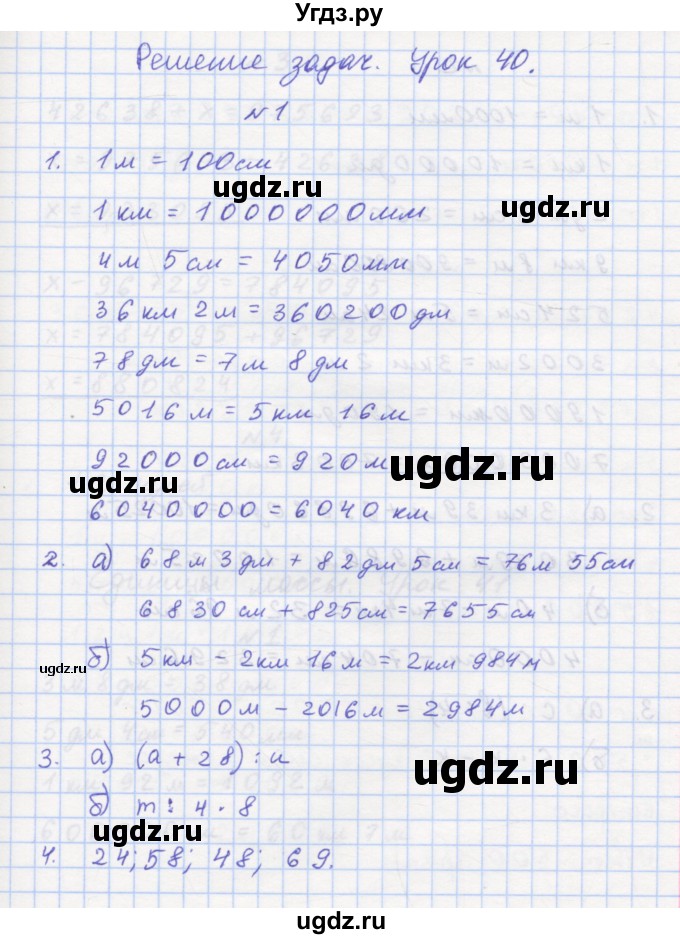 Угдз.ру
Решение задач. Урок 40.
№1
1. 1м = 100см
ugdz.ru
ugdz.ru
1км = 1000000мм
4м 5см = 4050мм
36км 2м = 360200дм
78дм = 7м 8дм
5016м = 5км 16м
92000см = 920м
ugdz.ru
ugdz.ru
6040000 = 6040км
2. а) 68м 3дм + 82дм 5см = 76м 55см
6830см + 825см = 7655см
ugdz.ru
б) 5км - 2км 16м = 2км 984м
5000м - 2016м = 2984м
3. а) (а + 28) : n
ugdz.ru
б) m : 4 · 8
ugdz.ru
4. 24; 58; 48; 69.
ugdz.ru
ugdz.ru